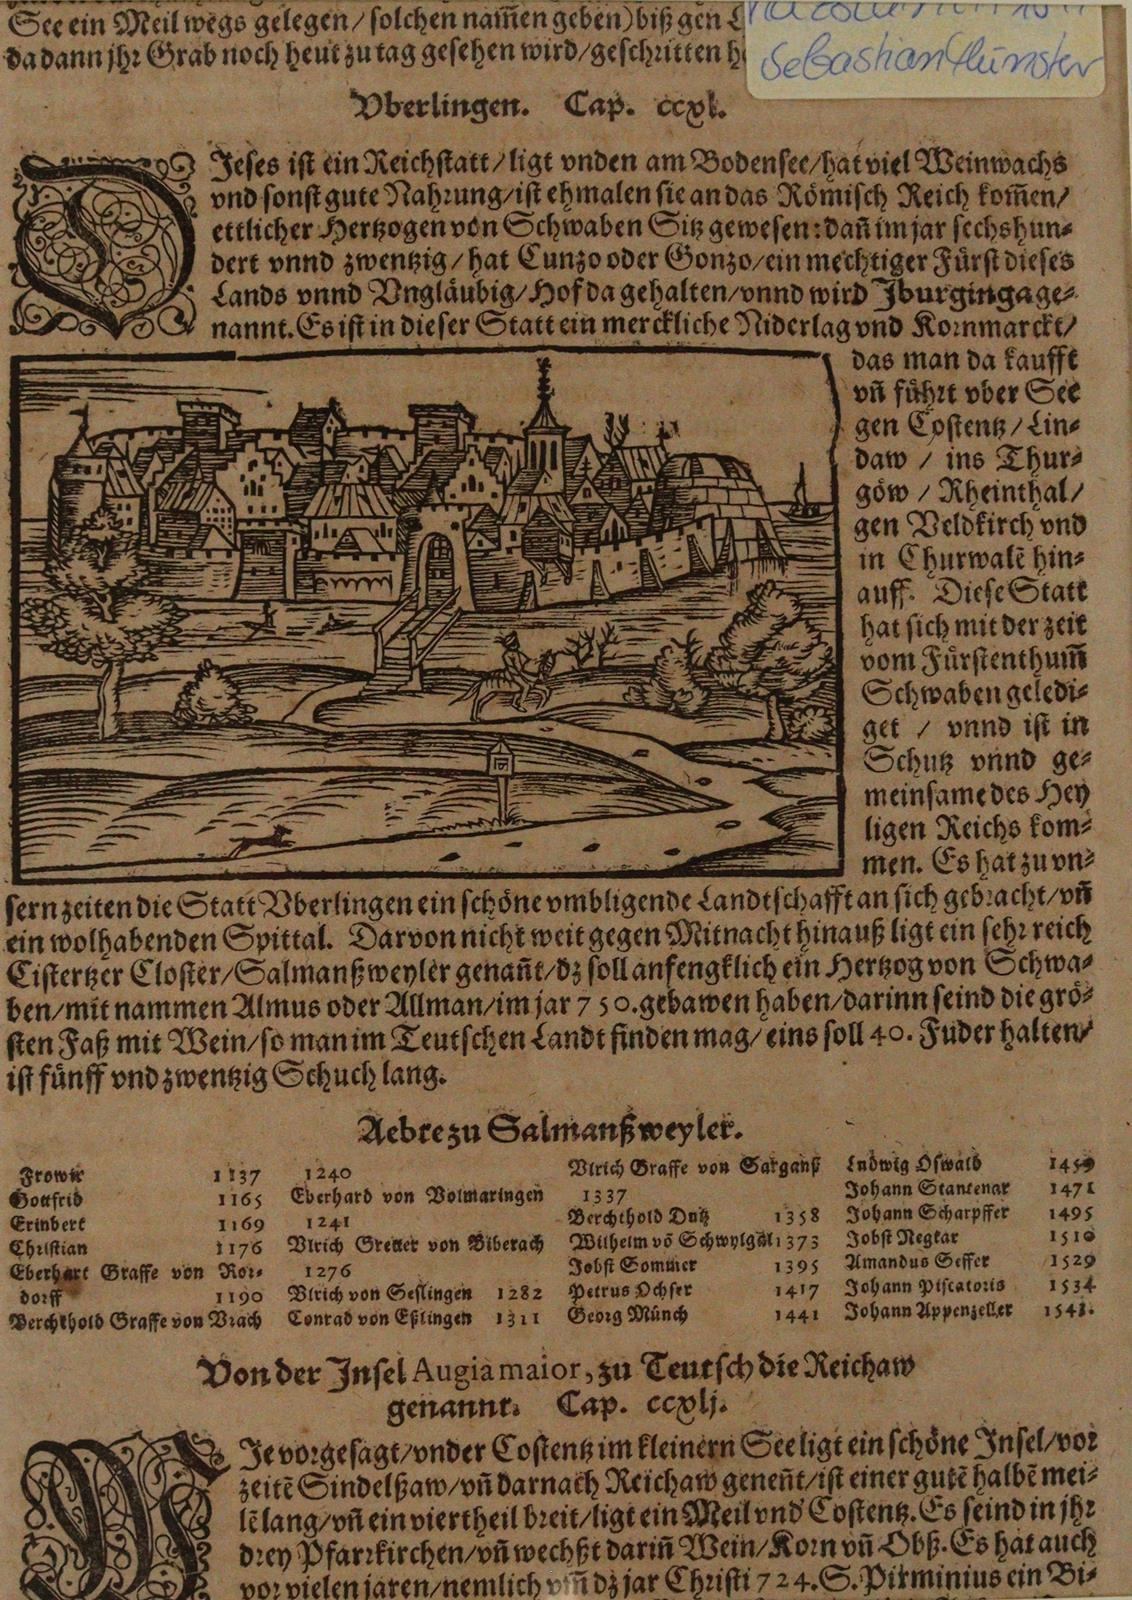 See ein Meil wegs gelegen/ solchen nam̃en geben) biß gen
da dann jhr Grab noch heut zu tag gesehen wird/ geschritten
Sebastian Münster
Vberlingen. Cap. ccxl.
DJeses ist ein Reichstatt/ ligt vnden am Bodensee/ hat viel Weinwachs
vnd sonst gute Nahrung/ ist ehmalen sie an das Römisch Reich kom̃en/
ettlicher Hertzogen von Schwaben Sitz gewesen: dañ im jar sechshun-
dert vnnd zwentzig/ hat Cunzo oder Gonzo/ ein mechtiger Fürst dieses
Lands vnnd Vngläubig/ Hof da gehalten/ vnnd wird Jburginga ge-
nannt. Es ist in dieser Statt ein merckliche Niderlag vnd Kornmarckt/
das man da kaufft
vñ führt vber See
gen Costentz/ Lin-
daw/ ins Thur-
göw/ Rheinthal/
gen Veldkirch vnd
in Churwalẽ hin-
auff. Diese Statt
hat sich mit der zeit
vom Fürstenthum̃
Schwaben geledi-
get/ vnnd ist in
Schutz vnnd ge-
meinsame des Hey
ligen Reichs kom-
men. Es hat zu vn-
sern zeiten die Statt Vberlingen ein schöne vmbligende Landtschafft an sich gebracht/ vñ
ein wolhabenden Spittal. Darvon nicht weit gegen Mitnacht hinauß ligt ein sehr reich
Cistertzer Closter/ Salmanßweyler genañt/ dz soll anfengklich ein Hertzog von Schwa-
ben/ mit nammen Almus oder Allman/ im jar 750. gebawen haben/ darinn seind die grö-
sten Faß mit Wein/ so man im Teutschen Landt finden mag/ eins soll 40. Fuder halten/
ist fünff vnd zwentzig Schuch lang.
Aebte zu Salmanßweyler.
Frowin 1137
Gottfrid 1165
Erinbert 1169
Christian 1176
Eberhart Graffe von Ror-
dorff 1190
Berchthold Graffe von Vrach
1240
Eberhard von Wolmaringen
1241
Vlrich Gretter von Biberach
1276
Vlrich von Seslingen 1282
Conrad von Eßlingen 1311
Vlrich Graffe von Sarganß
1337
Berchthold Dutz 1358
Wilhelm võ 1373
Jobst Sommer 1395
Petrus Ochser 1417
Georg Münch 1441
Ludwig Oswald 1459
Johann Stantenar 1471
Johann Scharpffer 1495
Jobst Negkar 1510
Amandus Seffer 1529
Johann Piscatoris 1534
Johann Appenzeller 1541.
Von der Jnsel Augia maior, zu Teutsch die Reichaw
genannt. Cap. ccxlj.
WJe vorgesagt/ vnder Costentz im kleinern See ligt ein schöne Jnsel/ vor
zeitẽ Sindelßaw/ vñ darnach Reichaw geneñt/ ist einer gutẽ halbẽ mei-
lẽ lang/ vñ ein viertheil breit/ ligt ein Meil vnd Costentz. Es seind in jhr
drey Pfarrkirchen/ vñ wechßt dariñ Wein/ Korn vñ Obß. Es hat auch
vor vielen jaren/ nemlich vm̃ dz jar Christi 724. S. Pirminius ein Bi-